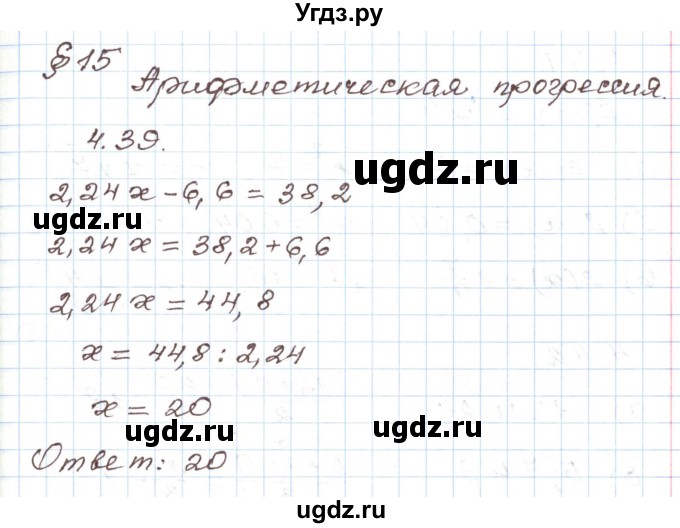 Угдз.ру
§ 15
Арифметическая прогрессия.
4.39.
2,24x - 6,6 = 38,2
ugdz.ru
ugdz.ru
2,24x = 38,2 + 6,6
2,24x = 44,8
x = 44,8 : 2,24
x = 20
ugdz.ru
ugdz.ru
Ответ: 20
ugdz.ru